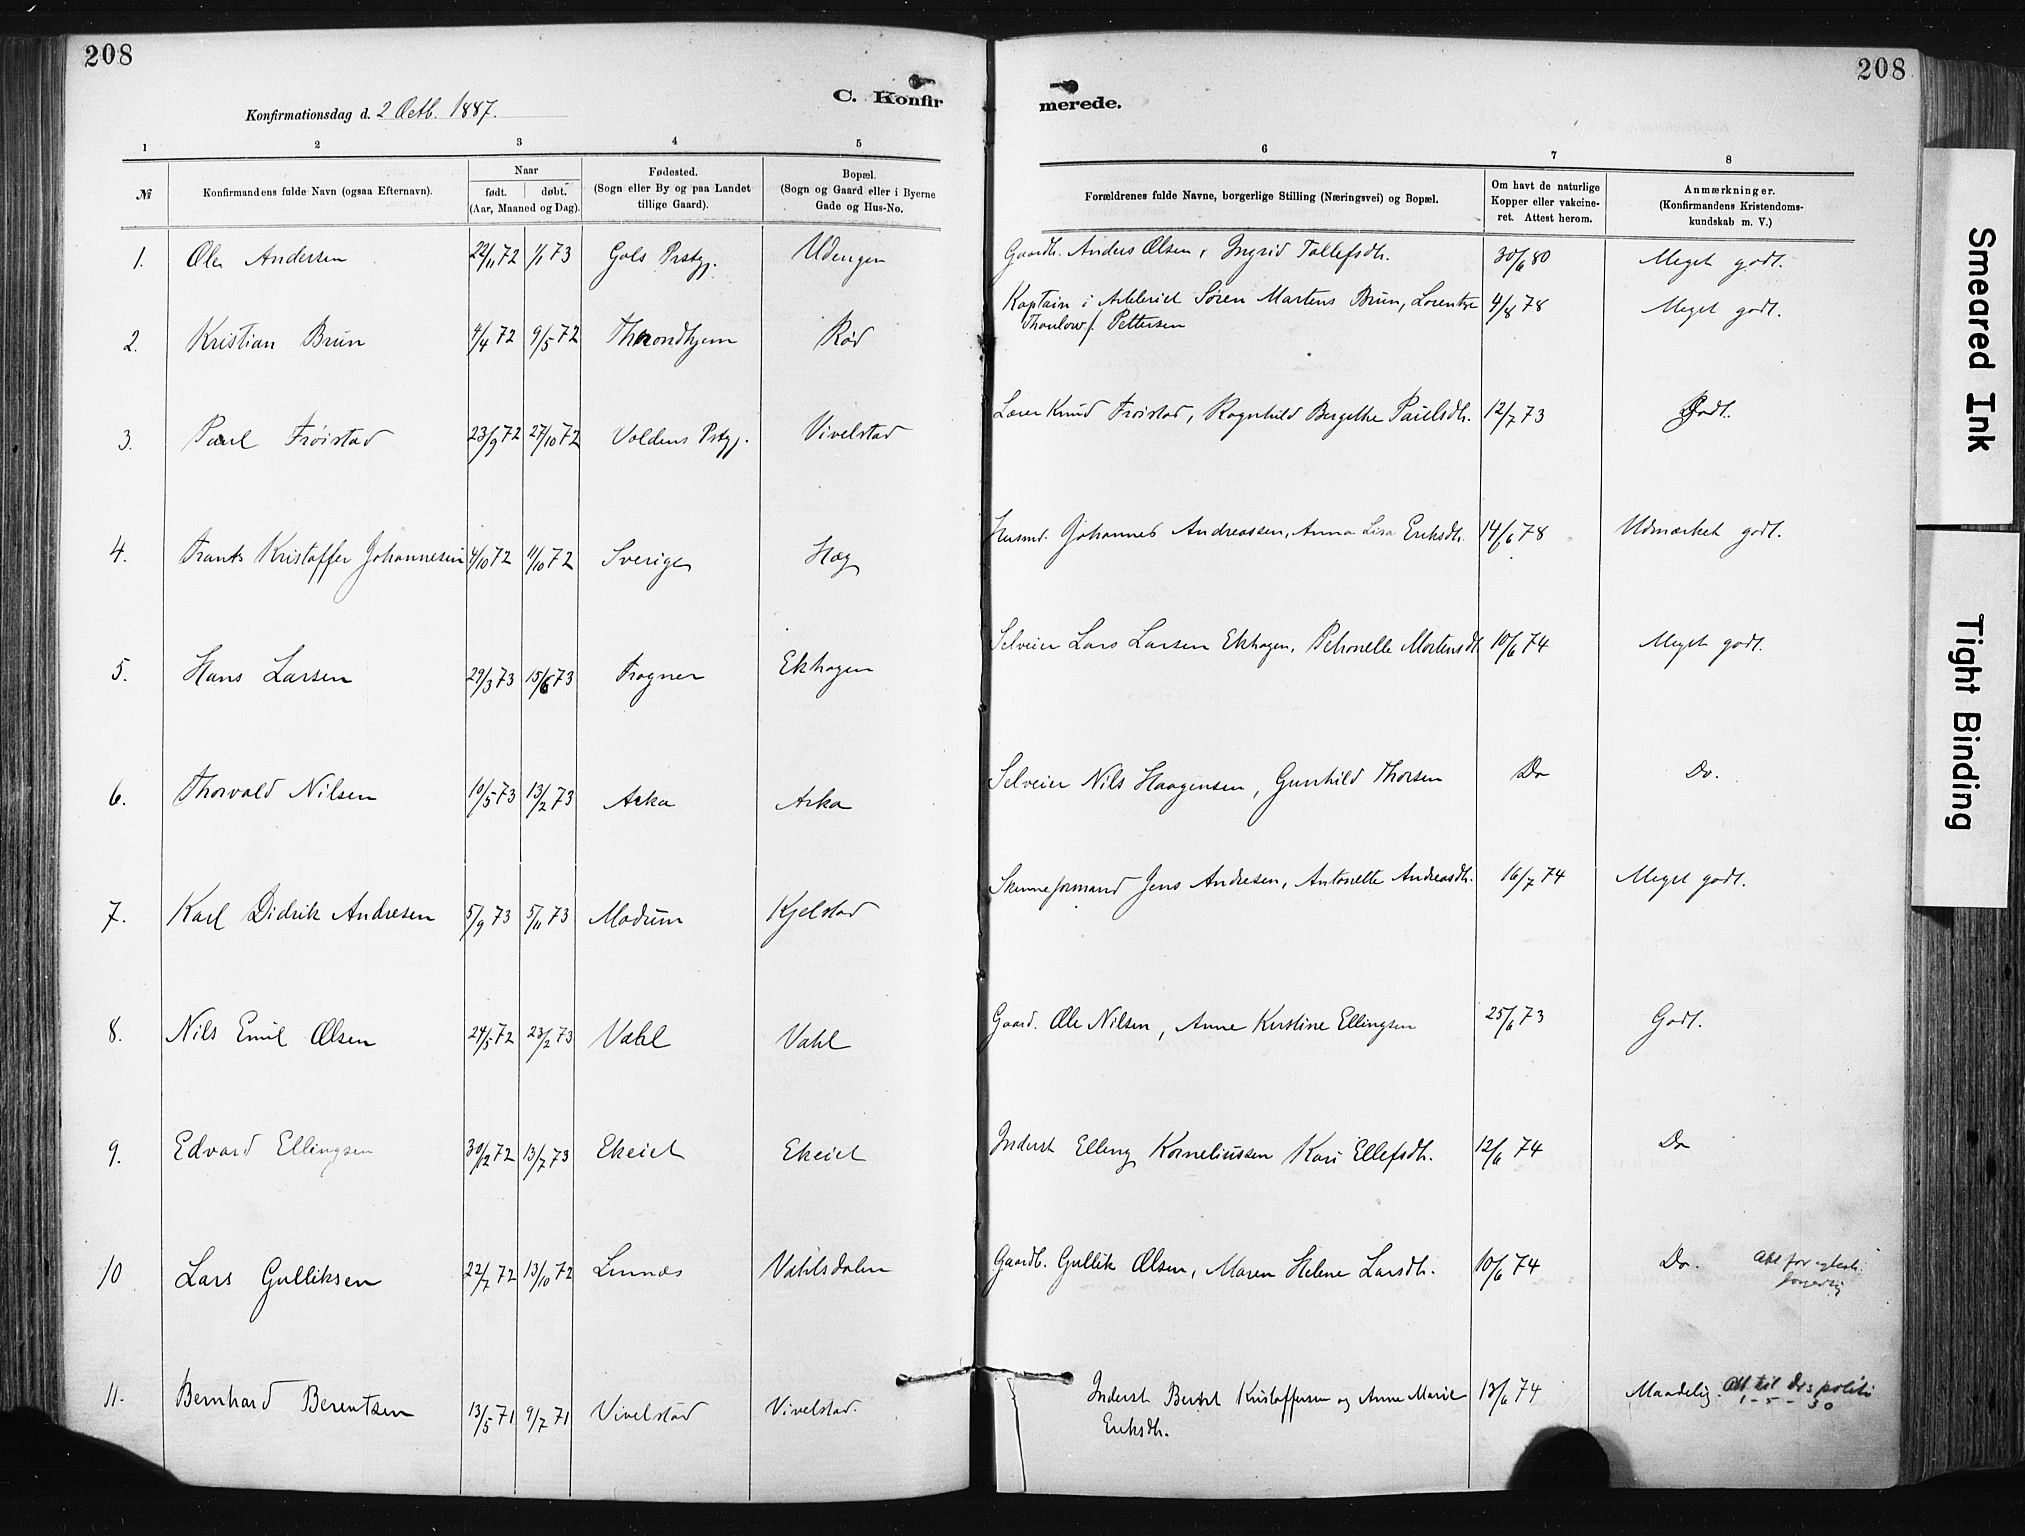 208
208
C. Konfir
merede.
Konfirmationsdag d. 2 Octb. 1887.
1 2 3 4 5 6 7 8
№ Konfirmandens fulde Navn (ogsaa Efternavn). Naar født. døbt. (Aar, Maaned og Dag). Fødested. (Sogn eller By og paa Landet tillige Gaard). Bopæl. (Sogn og Gaard eller i Byerne Gade og Hus-No.
Forældrenes fulde Navne, borgerlige Stilling (Næringsvei) og Bopæl. Om havt de naturlige Kopper eller vakcineret. Attest herom. Anmærkninger. (Konfirmandens Kristendomskundskab m. V.)
1. Ole Andersen 22/11 72 1/1 73 Gols Prstgj. Udengen Gaardb. Anders Olsen, Ingrid Tollefsdtr. 30/6 80 Meget godt.
2. Kristian Brun 4/4 72 9/5 72 Throndhjem Rød Kaptain i Artileriet Søren Martens Brun, Lorentze
Thaulow f. Pettersen 4/8 78 Meget godt.
3. Paul Frøistad 23/9 72 27/10 72 Voldens Prstgj. Vivelstad Lærer Knud Frøistad, Ragnhild Bergithe Paulsdtr. 12/7 73 Godt.
4. Frants Kristoffer Johannesen 4/10 72 11/10 72 Sverige Hæg Husmd. Johannes Andreassen, Anna Lisa Eriksdtr. 14/6 78 Udmærket godt.
5. Hans Larsen 29/3 73 15/6 73 Frogner Ekhagen Selveier Lars Larsen Ekhagen, Petronelle Mortensdt. 10/6 74 Meget godt.
6. Thorvald Nilsen 10/5 73 13/2 73 Aska Aska Selveier Nils Haagensen, Gunhild Thorsen Do Do.
7. Karl Didrik Andresen 5/9 73 5/11 73 Modum Kjelstad Skinneformand Jens Andresen, Antonette Andreasdtr. 16/7 74 Meget godt.
8. Nils Emil Olsen 24/5 72 23/2 73 Vahl Vahl Gaard. Ole Nilsen, Anne Kirstine Ellingsen 25/6 73 Godt.
9. Edvard Ellingsen 30/12 72 13/7 73 Ekeiet Ekeiet Inderst Elling Korneliussen Kari Ellefsdtr. 12/6 74 Do
10 Lars Gulliksen 22/7 72 13/10 72 Linnæs Vahlsdalen Gaardb. Gullik Olsen, Maren Helene Larsdtr. 10/6 74 Do. Att for
11. Bernhard Berentsen 13/5 71 9/7 71 Vivelstad Vivelstad. Inderst Berent Kristoffersen og Anne Marie
Eriksdtr. 13/6 74 Maadelig. Att til Drs politi
1-5-30
Smeared Ink
Tight Binding